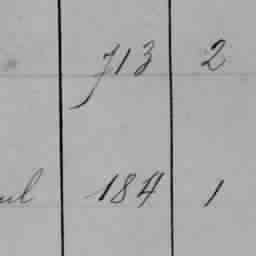 713 2
184 1